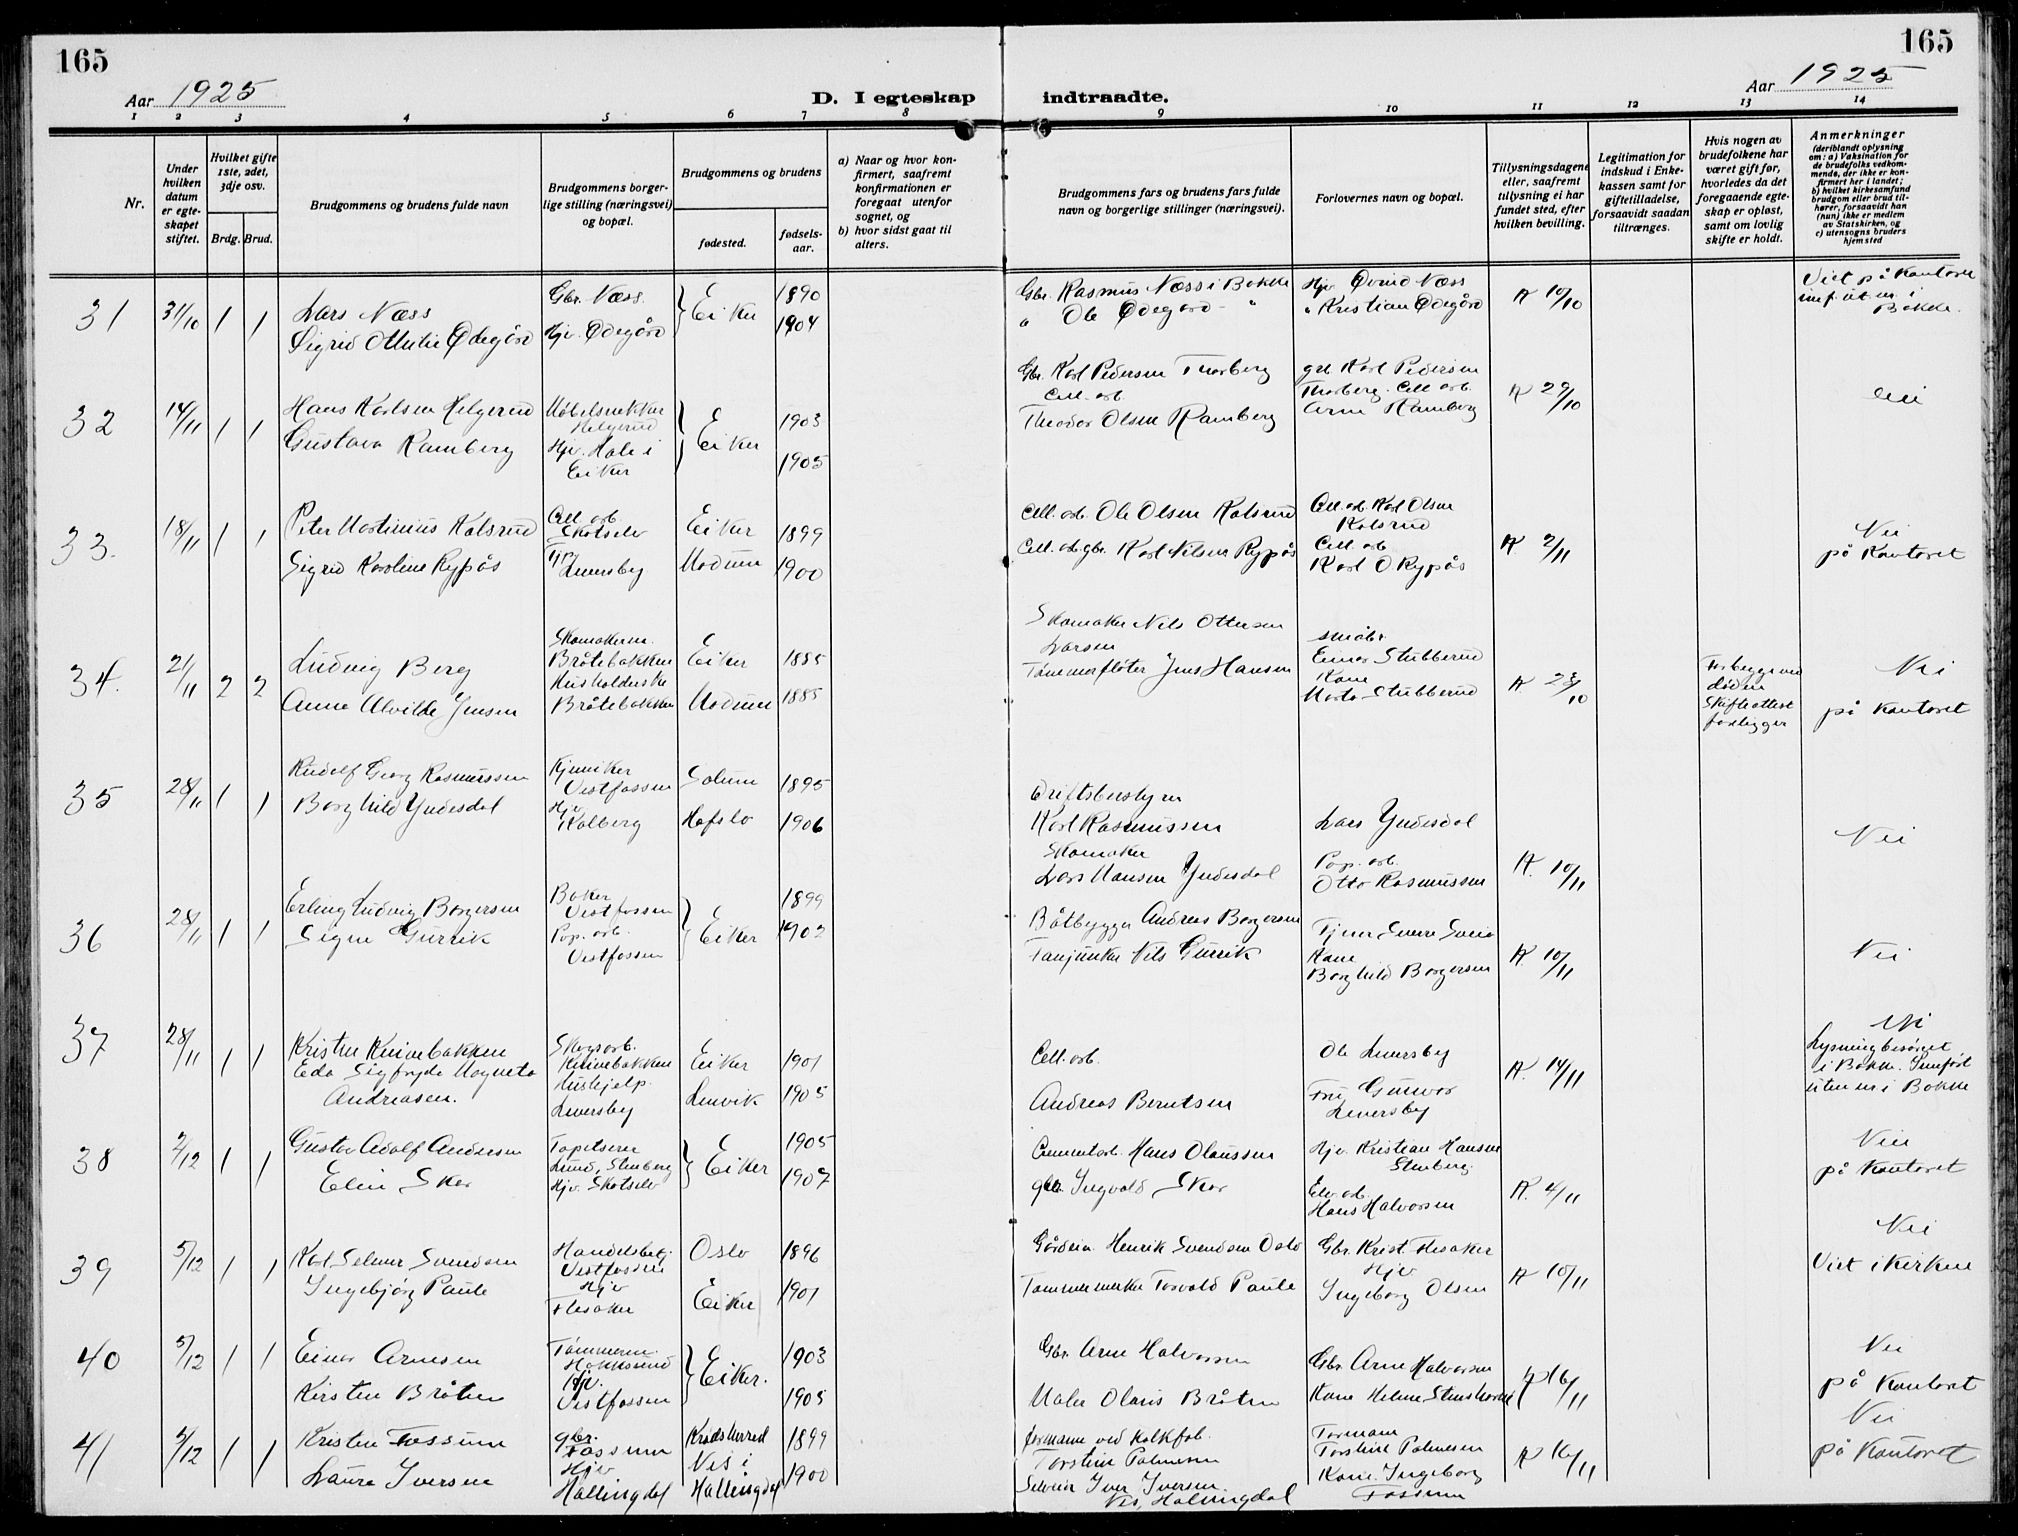 165
165
Aar 1925
Aar 1925
D. I egteskap indtraadte.
1 2 3 4 5 6 7 8 9 10 11 12 13 14
Nr.
Under hvilken datum er egteskapet stiftet.
Hvilket gifte 1ste, 2det, 3dje osv.
Brdg. Brud.
Brudgommens og brudens fulde navn
Brudgommens borgerlige stilling (næringsvei) og bopæl.
Brudgommens og brudens
fødested.
fødselsaar.
a) Naar og hvor konfirmert, saafremt konfirmationen er foregaat utenfor sognet, og
b) hvor sidst gaat til alters.
Brudgommens fars og brudens fars fulde navn og borgerlige stillinger (næringsvei).
Forlovernes navn og bopæl.
Tillysningsdagene eller, saafremt tillysning ei har fundet sted, efter hvilken bevilling.
Legitimation for indskud i Enkekassen samt for giftetilladelse, forsaavidt saadan tiltrænges.
Hvis nogen av brudefolkene har været gift før, hvorledes da det foregaaende egteskap er opløst, samt om lovlig skifte er holdt.
Anmerkninger
(deriblandt oplysning om: a) Vaksination for de brudefolks vedkommende, der ikke er konfirmert her i landet;
b) hvilket kirkesamfund brudgom eller brud tilhører, forsaavidt han (hun) ikke er medlem av Statskirken, og
c) utensogns bruders hjemsted
31 31/10 1 1
Lars Næss
Sigrid Othilie Ødegård
Gbr. Næss
Hjv. Ødegård
Eiker
1890
1904
Gbr. Rasmus Næss i Bakke
" Ole Ødegård - "
Hjv Øvind Næss
" Kristian Ødegård
K 10/10
Viet på kontoret
32 14/11 1 1
Hans Karlsen Helgerud
Gustava Ramberg
Møbelsnekker
Helgerud
Hjv. Hole i
Eiker
Eiker
1903
1905
Gbr. Karl Pedersen Thorberg
Cell. arb.
Theodor Olsen Ramberg
gbr Karl Pedersen
Thorberg. Cell arb.
Arne Ramberg
K 29/10
33. 18/11 1 1
Peter Martinius Kolsrud
Sigrid Karoline Rypås
Cell. arb.
Skotselv
Lversby
Eiker
Modum
1899
1900
Cell. arb. Ole Olsen Kolsrud
Cell. arb. gbr. Karl Nilsen Rypås
Cell. arb. Karl Olsen
Kolsrud
Cell. arb
Karl O Rypås
K. 2/11
Nei
på Kontoret
34. 21/11 2 2
Ludvig Berg
Anna Alvilde Jensen
Skomakerm.
Bråtebakken
Husholderske
Bråtebakken
Eiker
Modum
1885
1885
Skomaker Nils Ottersen
Larsen
Tømmerfløter Jens Hansen
småbr
Einar Stubberud
Kone
Marta Stubberud
K 28/10
døden
Skifteattest
foreligger
Nei
på Kontoret
35 28/11 1 1
Rudolf Georg Rasmussen
Borghild Yndesdal
Kjemiker
Vestfossen
Hjv
Kolberg
Solum
Hafslo
1895
1906
Driftsbestyrer
Karl Rasmussen
Skomaker
Lars Hansen Yndesdal
Lars Yndesdal
Pap. arb.
Otto Rasmussen
K. 10/11
Nei
36 28/11 1 1
Erling Ludvig Borgersen
Signe Gurrik
Baker
Vestfossen
Pap. arb.
Vestfossen
Eiker
1899
1902
Båtbygger Andreas Borgersen
Fanjunker Nils Gurrik
Kone
Borghild Borgersen
K. 10/11
Nei
37 28/11 1 1
Kristen Knivebakken
Eda Sigfryda Magneta
Andreasen.
Skogsarb.
Knivebakken
Hushjelp.
Lversby
Eiker
Lenvik
1901
1905
Cell. arb.
Andreas Berntsen
Ole Lversby
Fru Gunvor
Lversby
K. 14/11
Nei
Lysning besørget
i Bakke. Innført
uten nr i Bakke
38 2/12 1 1
Gustav Adolf Andersen
Elin Skar
Tapetserer
Lund, Stenberg
Hjv. Skotselv
Eiker
1905
1907
Cementarb. Hans Olaussen
gbr. Ingvald Skar
Hjv. Kristian Hansen
Stenberg.
Elv. arb.
Hans Halvorsen
K. 4/11
Nei
på Kontoret
39 5/12 1 1
Karl Selmer Svendsen
Ingebjørg Paule
Handelsbetj.
Vestfossen
Hjv
Flesaker
Oslo
Eiker
1896
1901
Gårdeier Henrik Svendsen Oslo
Tømmermerker Torvald Paule
Gbr. Krist. Flesaker
Hjv
Ingeborg Olsen
K 10/11
Nei
Viet i kirken
40 5/12 1 1
Einar Arnesen
Kirsten Bråten
Tømmerm.
Hokksund
Hjv.
Vestfossen
Eiker.
1903
1905
Gbr. Arne Halvorsen
Maler Olaus Bråten
Gbr. Arne Halvorsen
Kone Helene
K 16/11
Nei
på Kontoret
41 5/12 1 1
Kristen Fossum
Laura Iversen
gbr.
Fossum
Hjv
Hallingdal
Krødsherred
Nes i
Hallingdal
1899
1900
formann ved kalkfab.
Torstein Palmesen
Selveier Iver Iversen
Nes, Hallingdal
Formann
Torstein Palmesen
Kone. Ingeborg
Fossum
K 16/11
Nei
på Kontoret